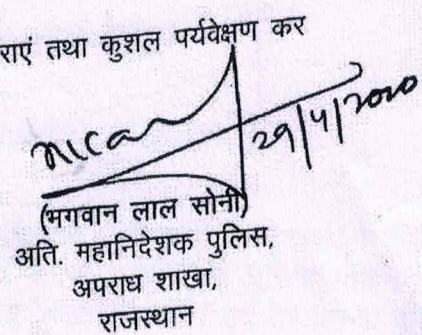 राएं तथा कुशल पर्यवेक्षण कर
29/4/2020
(भगवान लाल सोनी)
अति. महानिदेशक पुलिस,
अपराध शाखा,
राजस्थान